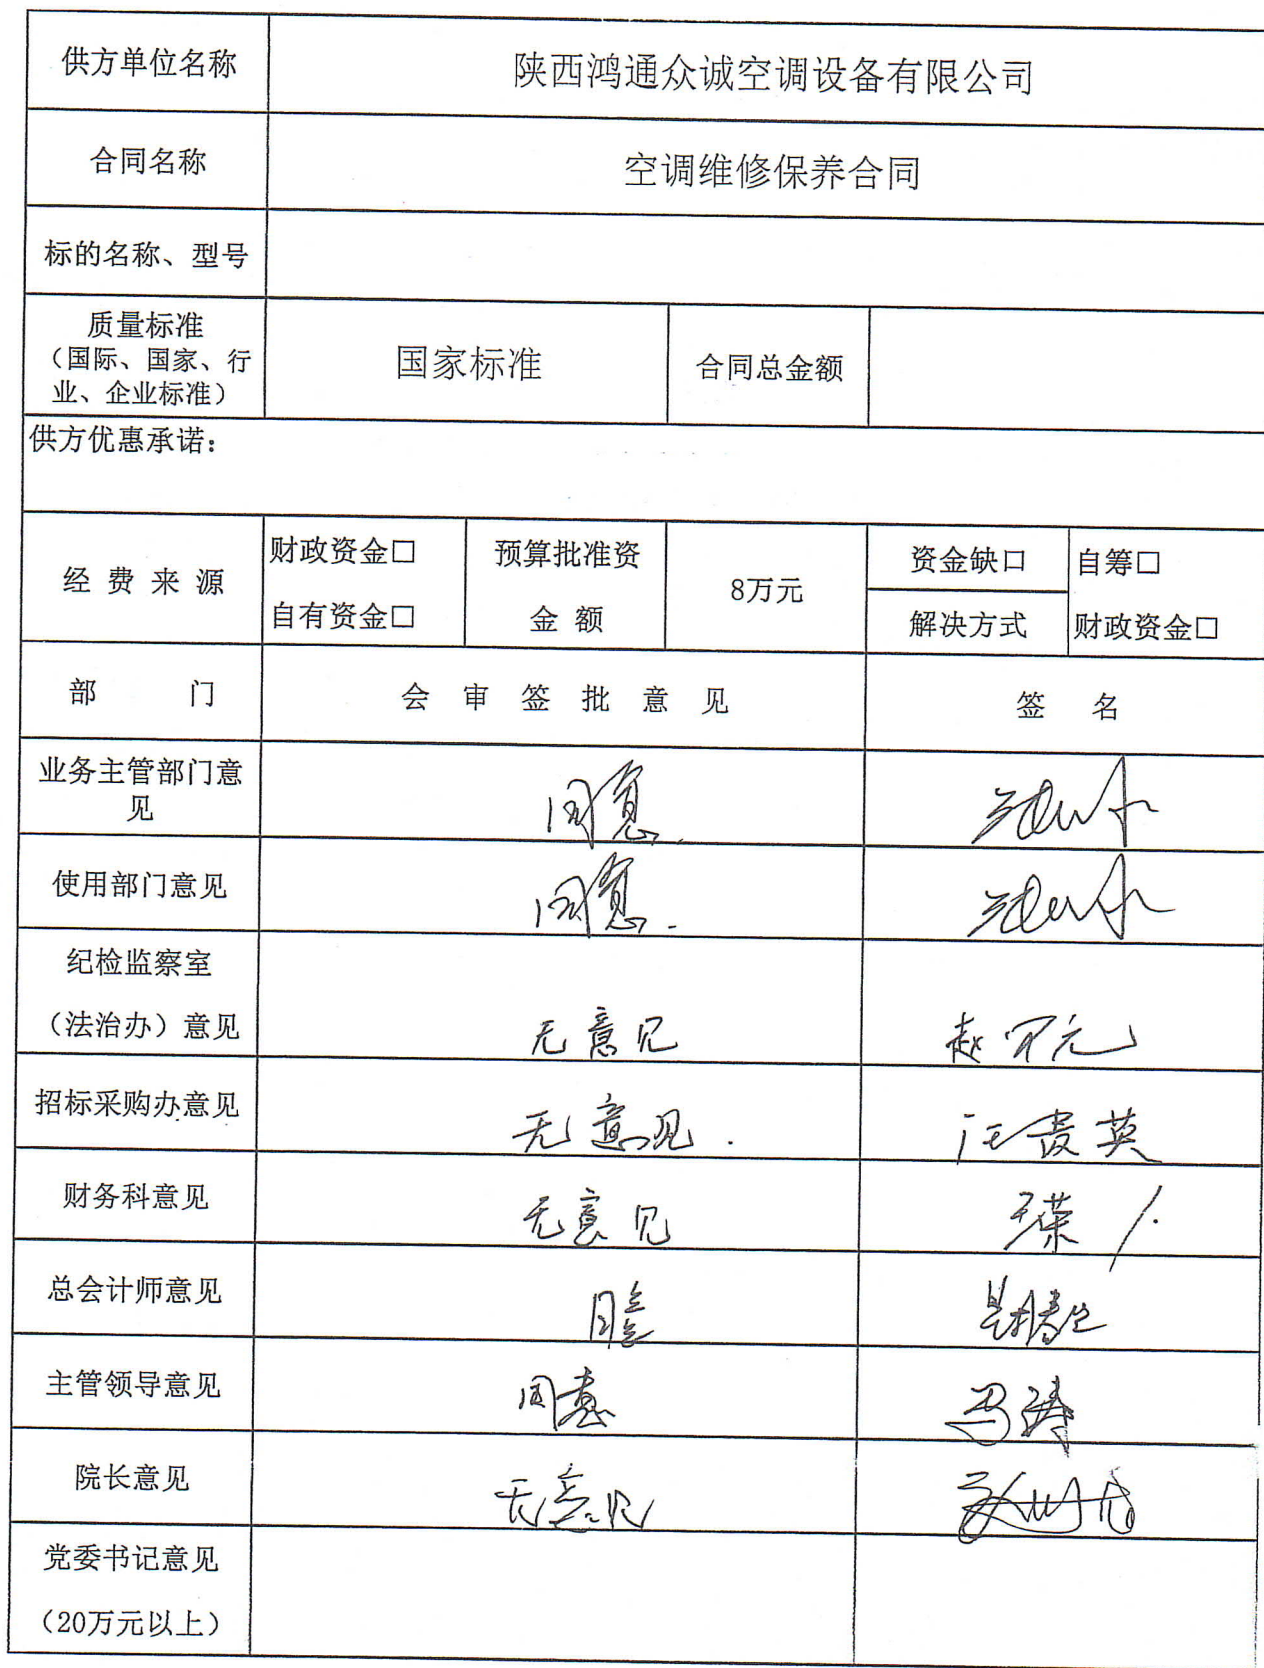 供方单位名称
陕西鸿通众诚空调设备有限公司
合同名称
空调维修保养合同
标的名称、型号
质量标准
（国际、国家、行
业、企业标准）
国家标准
合同总金额
供方优惠承诺：
经 费 来 源
财政资金□
自有资金□
预算批准资
金 额
8万元
资金缺口
解决方式
自筹□
财政资金□
部 门
会 审 签 批 意 见
签 名
业务主管部门意
见
同意.
使用部门意见
同意.
纪检监察室
（法治办）意见
无意见
招标采购办意见
无意见.
汪贵英
财务科意见
无意见
总会计师意见
同意
主管领导意见
同意
冯涛
院长意见
无意见
党委书记意见
（20万元以上）